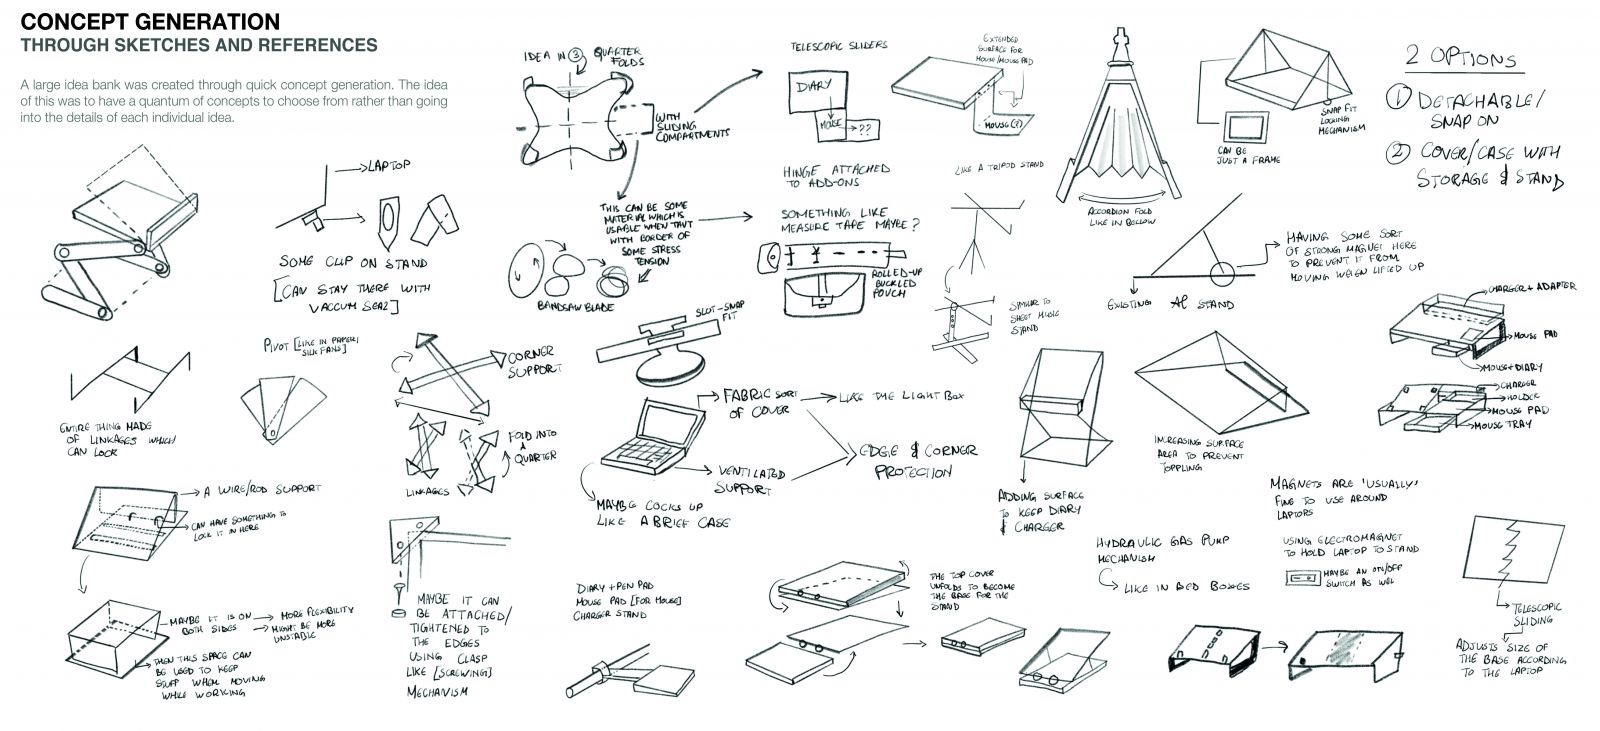 CONCEPT GENERATION
THROUGH SKETCHES AND REFERENCES
A large idea bank was created through quick concept generation. The idea
of this was to have a quantum of concepts to choose from rather than going
into the details of each individual idea.
IDEA IN ③ QUARTER
FOLDS
WITH
SLIDING
COMPARTMENTS
TELESCOPIC SLIDERS
DIARY
MOUSE
??
HINGE ATTACHED
TO ADD-ONS
EXTENDED
SURFACE FOR
MOUSE/MOUSE PAD
MOUSE(?)
LIKE A TRIPOD STAND
ACCORDION FOLD
LIKE IN BELLOW
SNAP FIT
LOCKING
MECHANISM
CAN BE
JUST A FRAME
2 OPTIONS
① DETACHABLE/
SNAP ON
② COVER/CASE WITH
STORAGE & STAND
LAPTOP
SOME CLIP ON STAND
[CAN STAY THERE WITH
VACCUM SEAL]
THIS CAN BE SOME
MATERIAL WHICH IS
USABLE WHEN TAUT
WITH BORDER OF
SOME STRESS
TENSION
BANDSAW BLADE
SOMETHING LIKE
MEASURE TAPE MAYBE?
ROLLED-UP
BUCKLED
POUCH
SIMILAR TO
SHEET MUSIC
STAND
HAVING SOME SORT
OF STRONG MAGNET HERE
TO PREVENT IT FROM
MOVING WHEN LIFTED UP
EXISTING AL STAND
CHARGER + ADAPTER
MOUSE PAD
MOUSE+DIARY
CHARGER
HOLDER
MOUSE PAD
MOUSE TRAY
ENTIRE THING MADE
OF LINKAGES WHICH
CAN LOCK
PIVOT [LIKE IN PAPER/
SILK FANS]
CORNER
SUPPORT
FOLD INTO
A
QUARTER
LINKAGES
SLOT-SNAP
FIT
FABRIC SORT
OF COVER
LIKE THE LIGHT BOX
EDGE & CORNER
PROTECTION
VENTILATED
SUPPORT
MAYBE COCKS UP
LIKE A BRIEF CASE
ADDING SURFACE
TO KEEP DIARY
& CHARGER
INCREASING SURFACE
AREA TO PREVENT
TOPPLING
MAGNETS ARE 'USUALLY'
FINE TO USE AROUND
LAPTOPS
USING ELECTROMAGNET
TO HOLD LAPTOP TO STAND
MAYBE AN ON/OFF
SWITCH AS WELL
HYDRAULIC GAS PUMP
MECHANISM
LIKE IN BED BOXES
TELESCOPIC
SLIDING
ADJUSTS SIZE OF
THE BASE ACCORDING
TO THE LAPTOP
A WIRE/ROD SUPPORT
CAN HAVE SOMETHING TO
LOCK IT IN HERE
MAYBE IT IS ON
BOTH SIDES
MORE FLEXIBILITY
MIGHT BE MORE
UNSTABLE
THEN THIS SPACE CAN
BE USED TO KEEP
STUFF WHEN MOVING
WHILE WORKING
MAYBE IT CAN
BE ATTACHED/
TIGHTENED TO
THE EDGES
USING CLASP
LIKE [SCREWING]
MECHANISM
DIARY + PEN PAD
MOUSE PAD [FOR MOUSE]
CHARGER STAND
THE TOP COVER
UNFOLDS TO BECOME
THE BASE FOR THE
STAND